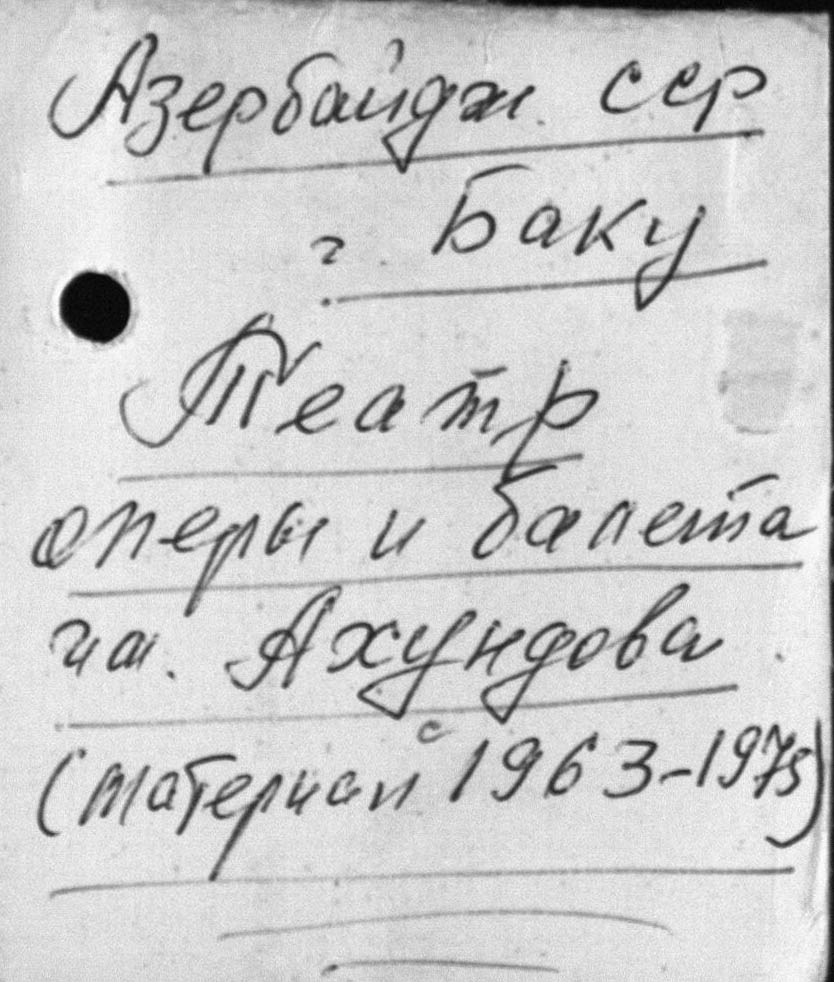 Азербайдж. ССР
г. Баку
Театр
оперы и балета
им. Ахундова
(материал с 1963-1975)